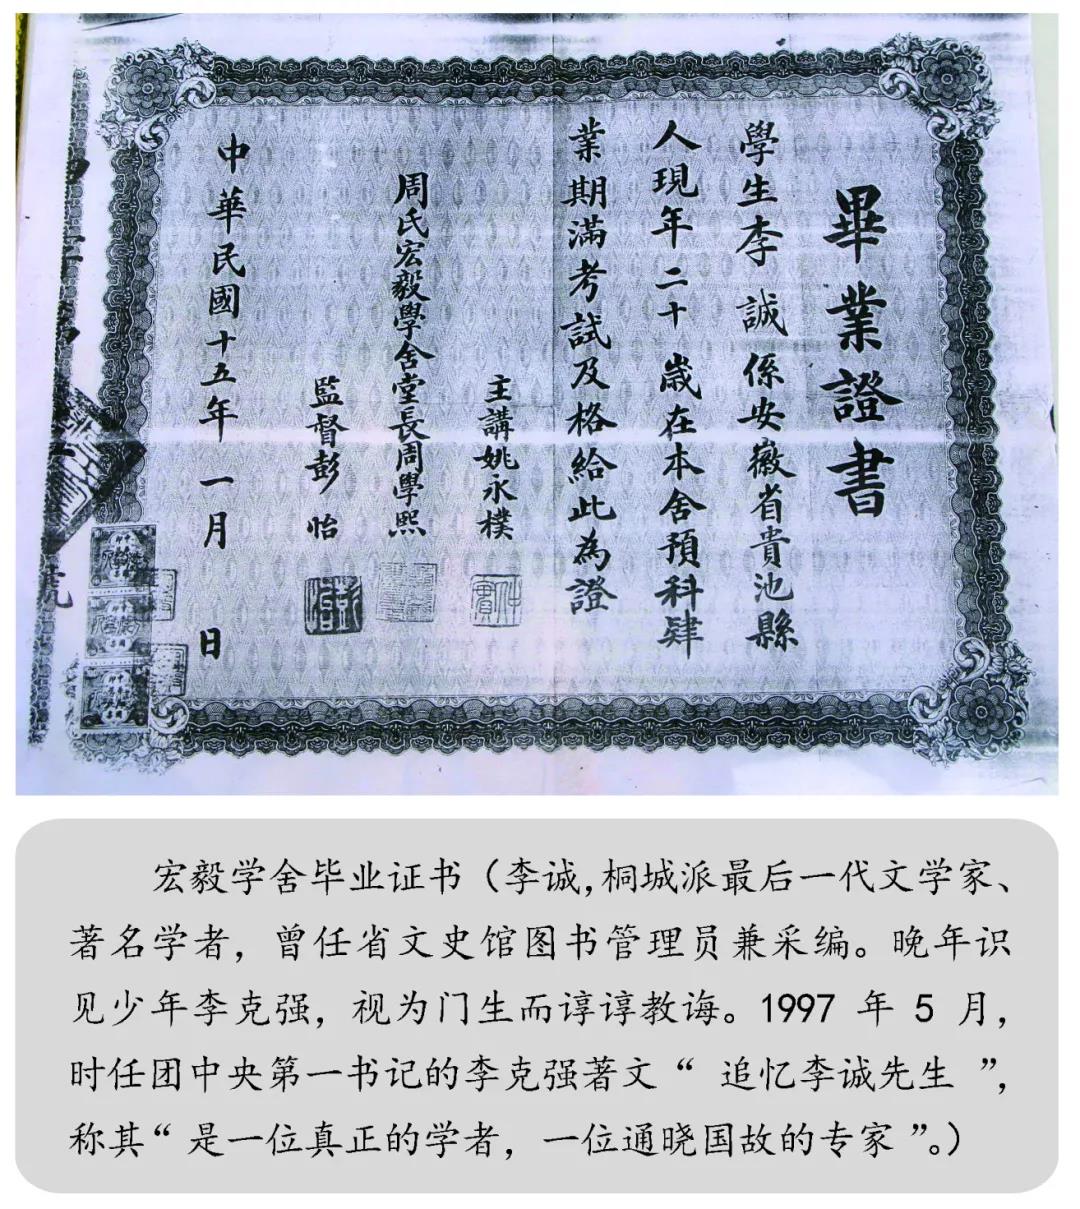 畢業證書
學生李誠係安徽省貴池縣
人現年二十歲在本舍預科肄
業期滿考試及格給此為證
主講姚永樸
周氏宏毅學舍堂長周學熙
監督彭怡
中華民國十五年一月日
宏毅学舍毕业证书（李诚,桐城派最后一代文学家、
著名学者，曾任省文史馆图书管理员兼采编。晚年识
见少年李克强，视为门生而谆谆教诲。1997 年 5 月，
时任团中央第一书记的李克强著文“ 追忆李诚先生 ”，
称其“ 是一位真正的学者，一位通晓国故的专家 ”。）